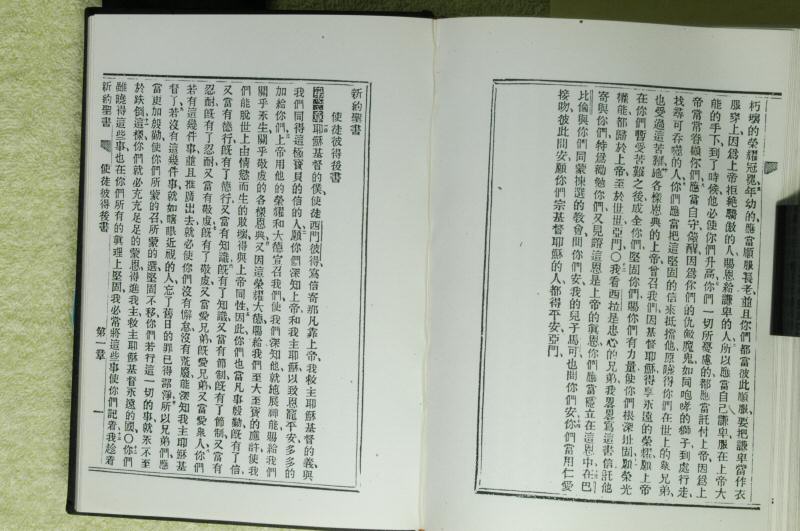 朽壞的榮耀冠冕年幼的應當順服長老並且你們都當彼此順服要把謙卑當作衣
服穿上因爲上帝拒絕驕傲的人賜恩給謙卑的人所以應當自己謙卑服在上帝大
能的手下到了時候他必使你們升高你們一切所憂慮的都應當託付上帝因爲上
帝常常眷顧你們應當自守儆醒因爲你們的仇敵魔鬼如同咆哮的獅子到處行走
找尋可吞噬的人你們應當把這堅固的信來抵擋他原曉得你們在世上的衆兄弟
也受過這苦難施各樣恩典的上帝曾召我們因基督耶穌得享永遠的榮耀願上帝
在你們暫受苦難之後成全你們堅固你們賜你們有力量使你們根深址固願榮光
權能都歸於上帝至於世世亞門○我看西拉是忠心的兄弟我畧畧寫這書信託他
寄與你們特爲勸勉你們又見證這恩是上帝的眞恩你們應當壁立在這恩中在巴
比倫與你們同蒙揀選的教會問你們安我的兒子馬可也問你們安你們當用仁愛
接吻彼此問安願你們宗基督耶穌的人都得平安亞門
新約聖書
使徒彼得後書
第一章耶穌基督的僕使徒西門彼得寫信寄那凡靠上帝我救主耶穌基督的義與
我們同得這極寶貝的信的人願你們深知上帝和我主耶穌以致恩寵平安多多的
加給你們上帝用他的榮耀和大德宣召我們使我們深知他就施展神能賜給我們
關乎永生關乎敬虔的各樣恩典又因這榮耀大德賜給我們至大至寶的應許使我
們能脫世上由情慾而生的敗壞得與上帝同性因此你們也當凡事殷勤旣有了信
又當有德行旣有了德行又當有知識旣有了知識又當有節制旣有了節制又當有
忍耐旣有了忍耐又當有敬虔旣有了敬虔又當愛兄弟旣愛兄弟又當愛衆人你們
若有這幾件事並且推廣出去就必使你們沒有懈怠沒有荒廢能深知我主耶穌基
督了若沒有這幾件事就如瞎眼近視的人忘了舊日的罪已得潔淨所以兄弟們應
當更加殷勤使你們所蒙的召所蒙的選堅固不移你們若行這一切的事就永不至
於跌倒這樣你們就必充充足足的蒙恩得進我主救主耶穌基督永遠的國○你們
雖曉得這些事也在你們所有的眞理上堅固我必常將這些事使你們記着我趁着
新約聖書 使徒彼得後書 第一章 一